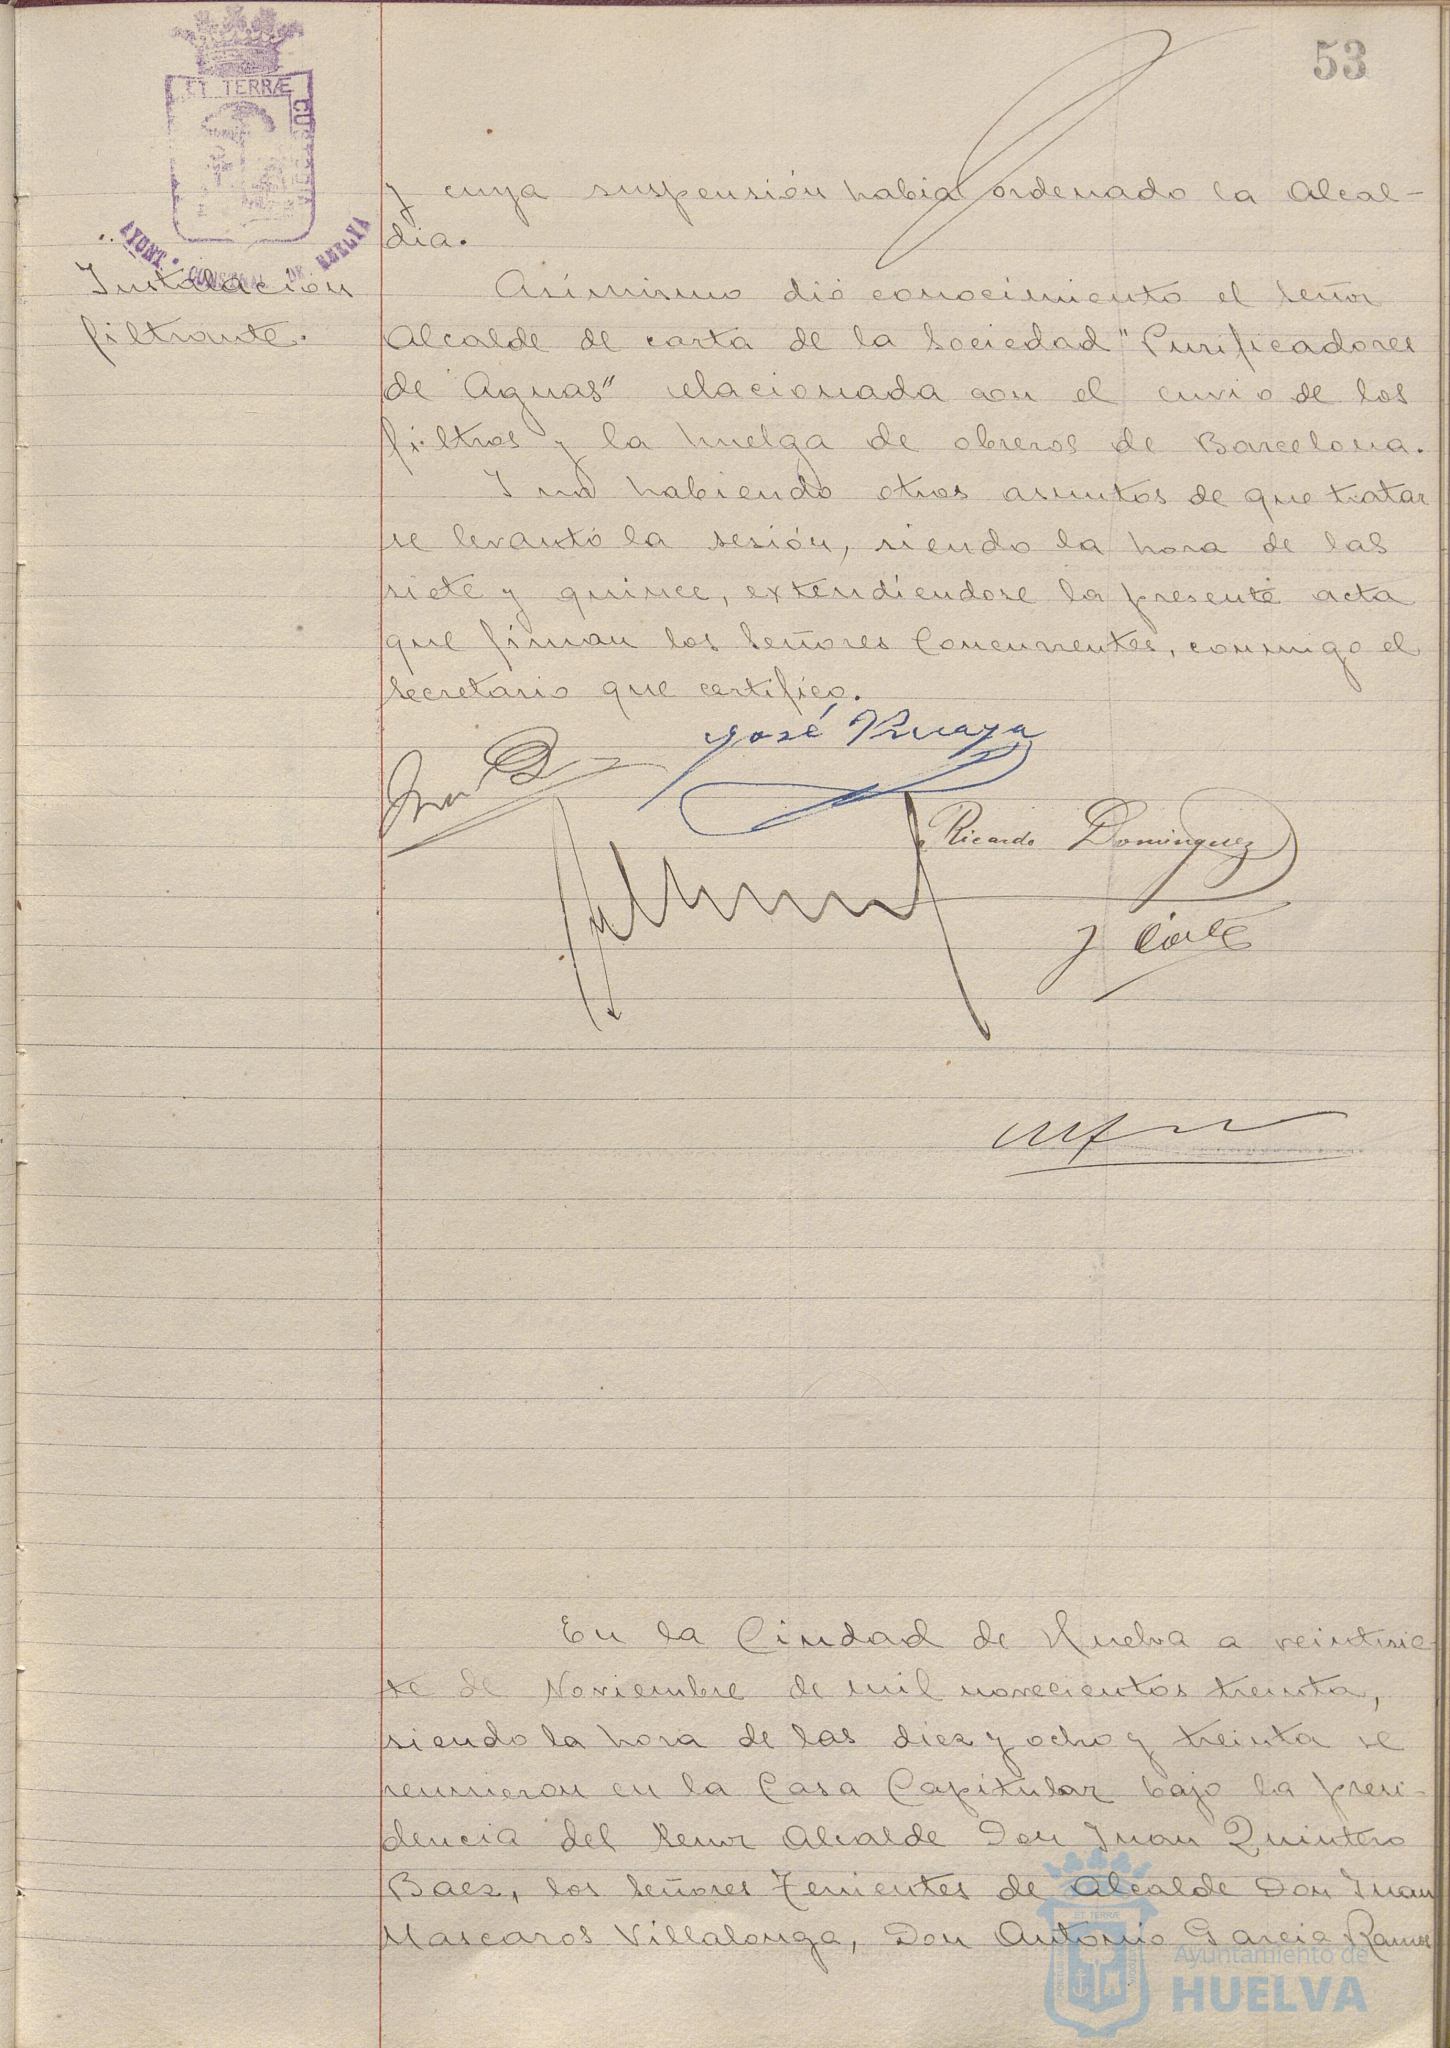 53
ET TERRÆ
CU
AYUNT. CONSTNAL DE HUELVA
y cuya suspensión habia ordenado la Alcal-
dia.
Instalacion
filtrante.
Asimismo dió conocimiento el señor
Alcalde de carta de la Sociedad "Purificadores
de Aguas" relacionada con el envio de los
filtros y la huelga de obreros de Barcelona.
Y no habiendo otros asuntos de que tratar
se levantó la sesión, siendo la hora de las
siete y quince, extendiendose la presente acta
que firman los Señores Concurrentes, conmigo el
Secretario que certifico.
José
Ricardo Dominguez
En la Ciudad de Huelva a veintisie-
te de Noviembre de mil novecientos treinta,
siendo la hora de las diez y ocho y treinta se
reunieron en la Casa Capitular bajo la presi-
dencia del Señor Alcalde Don Juan Quintero
Baez, los Señores Tenientes de Alcalde Don Juan
Mascaros Villalonga, Don Antonio Garcia Ramos
ET TERRÆ
Ayuntamiento de
HUELVA